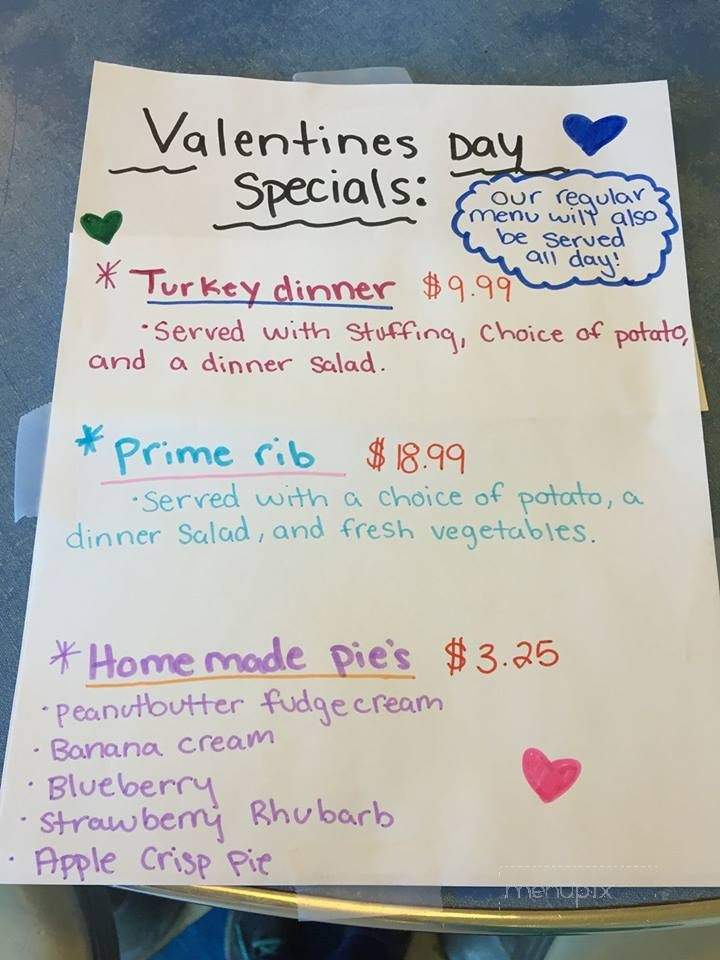 Valentines Day
Specials:
our regular
menu will also
be served
all day!
* Turkey dinner $9.99
• Served with stuffing, choice of potato,
and a dinner salad.
* Prime rib $18.99
• Served with a choice of potato, a
dinner salad, and fresh vegetables.
* Home made pie's $3.25
• peanutbutter fudge cream
• Banana cream
• Blueberry
• Strawberry Rhubarb
• Apple Crisp Pie
menupix